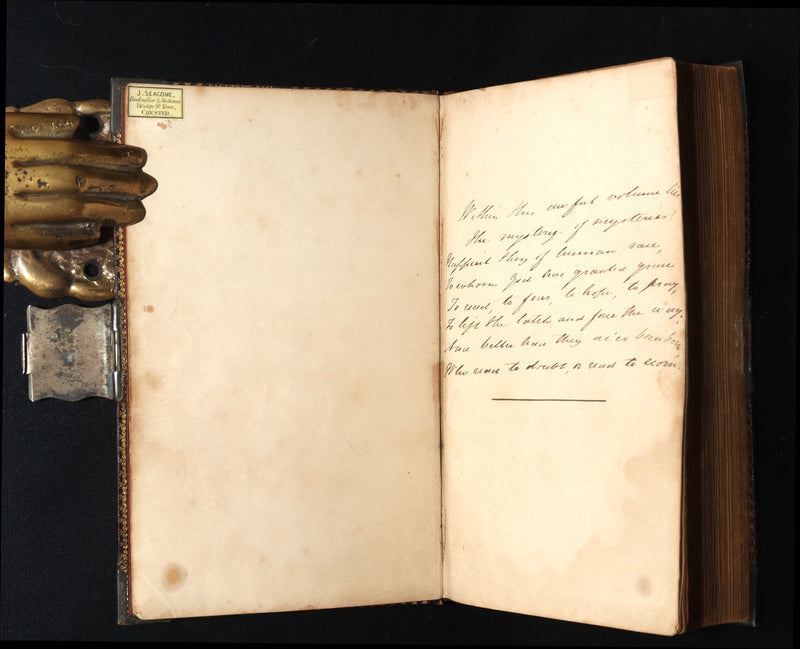 J. SEACOME,
Bookseller & Stationer
Bridge St. Row,
CHESTER.
Within this awful volume lies
The mystery of mysteries!
Happiest they of human race,
To whom God has granted grace
To read, to fear, to hope, to pray,
To lift the latch, and force the way;
And better had they ne'er been born
Who read to doubt, or read to scorn.